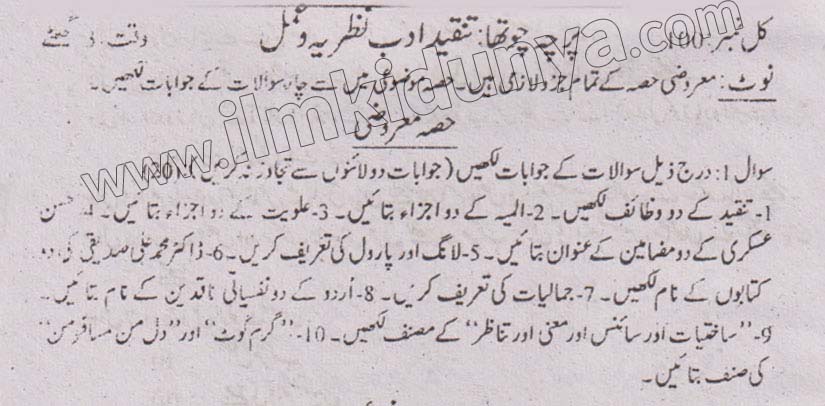 کل نمبر: 100 پرچہ چوتھا: تنقید ادب نظریہ و عمل وقت: 3 گھنٹے
نوٹ: معروضی حصہ کے تمام جزو لازمی ہیں۔ حصہ موضوعی میں سے چار سوالات کے جوابات لکھیں۔
حصہ معروضی
سوال 1: درج ذیل سوالات کے جوابات لکھیں (جوابات دو لائنوں سے تجاوز نہ کریں) (20)
1- تنقید کے دو وظائف لکھیں۔ 2- المیہ کے دو اجزاء بتائیں۔ 3- علویت کے دو اجزاء بتائیں۔ 4- حسن
عسکری کے دو مضامین کے عنوان بتائیں۔ 5- لانگ اور پارول کی تعریف کریں۔ 6- ڈاکٹر محمد علی صدیقی کی دو
کتابوں کے نام لکھیں۔ 7- جمالیات کی تعریف کریں۔ 8- اُردو کے دو نفسیاتی ناقدین کے نام بتائیں۔
9- "ساختیات اور سائنس اور معنی اور تناظر" کے مصنف لکھیں۔ 10- "گرم کوٹ" اور "دل من مسافر من"
کی صنف بتائیں۔
www.ilmkidunya.com